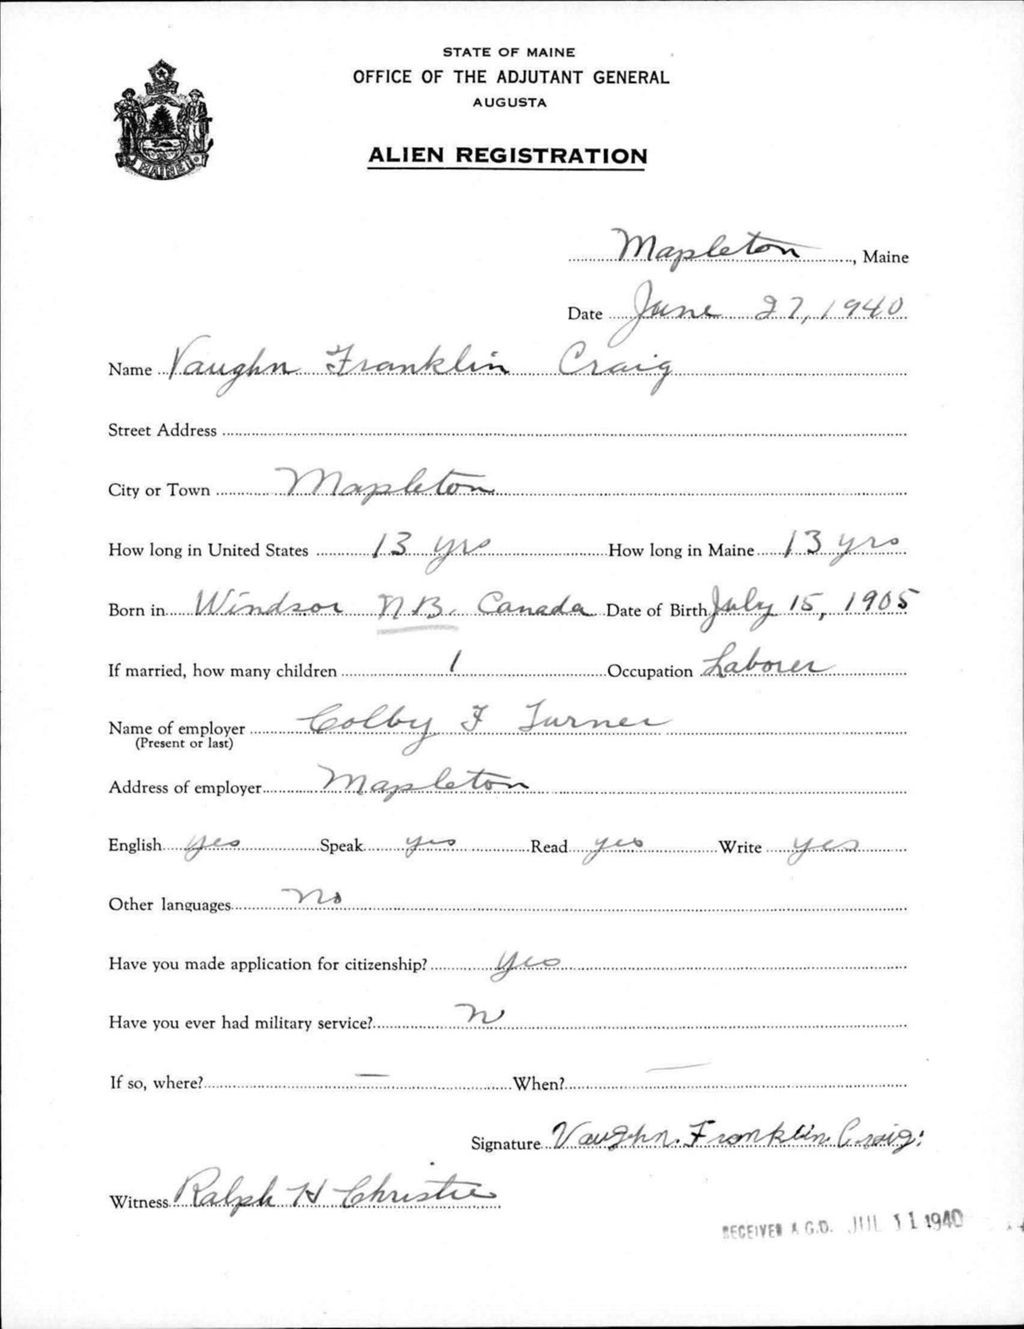 STATE OF MAINE
OFFICE OF THE ADJUTANT GENERAL
AUGUSTA
ALIEN REGISTRATION
MAINE
Mapleton, Maine
Date June 27, 1940
Name Vaughn Franklin Craig
Street Address
City or Town Mapleton
How long in United States 13 yrs How long in Maine 13 yrs
Born in Windsor N.B. Canada Date of Birth July 15, 1905
If married, how many children 1 Occupation Laborer
Name of employer Colby F Turner
(Present or last)
Address of employer Mapleton
English yes Speak yes Read yes Write yes
Other languages No
Have you made application for citizenship? Yes
Have you ever had military service? No
If so, where? — When? —
Signature Vaughn. Franklin. Craig.
Witness Ralph H Christie
RECEIVED A.G.O. JUL 11 1940